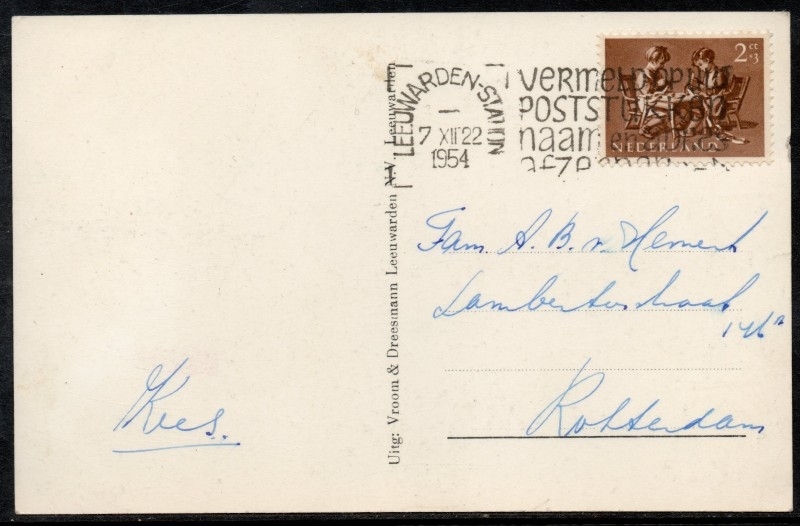 LEEUWARDEN-STATION
7 XII 22
1954
VERMELD OP UW
POSTSTUKKEN
naam en adres
afzender
2 ct
+3
NEDERLAND
Uitg: Vroom & Dreesmann Leeuwarden N.V. Leeuwarden
Fam. A. B. v. Hemert
Lambertusstraat
146a
Rotterdam
Kees.